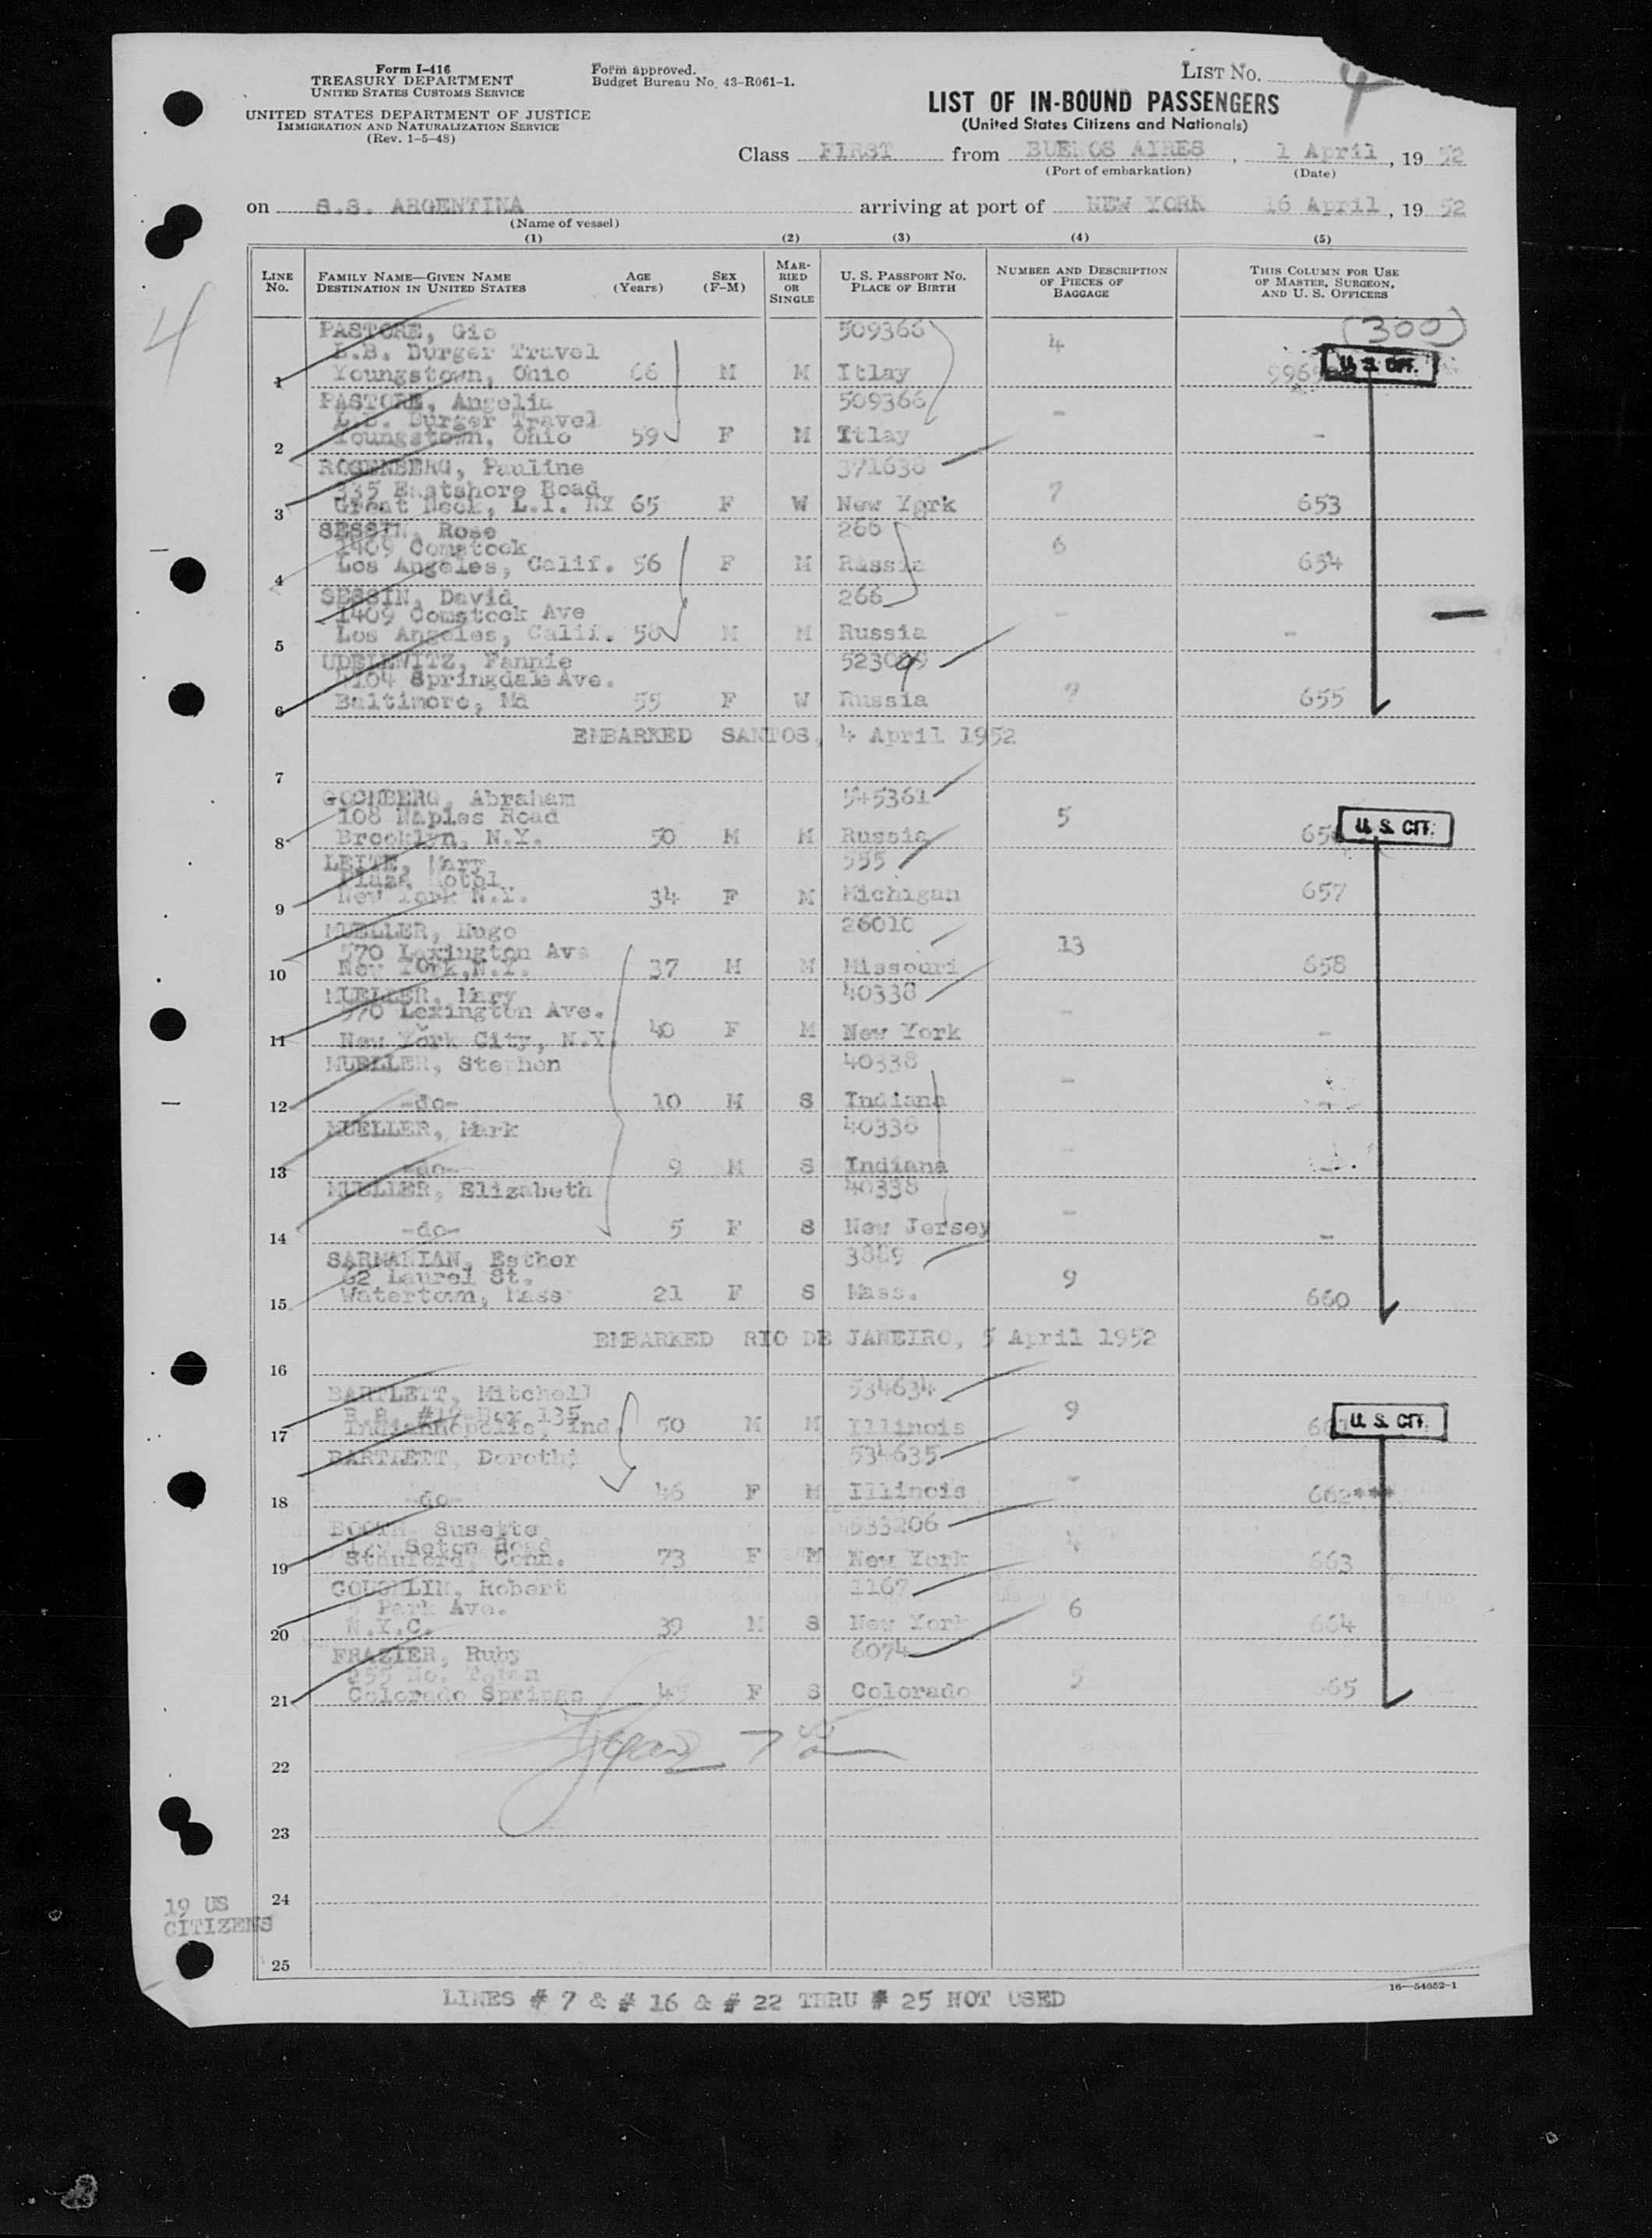 Form I-416
TREASURY DEPARTMENT
UNITED STATES CUSTOMS SERVICE
UNITED STATES DEPARTMENT OF JUSTICE
IMMIGRATION AND NATURALIZATION SERVICE
(Rev. 1-5-48)
Form approved.
Budget Bureau No. 43-R061-1.
LIST NO. 4
LIST OF IN-BOUND PASSENGERS
(United States Citizens and Nationals)
Class FIRST from BUENOS AIRES, 1 April, 19 52
(Port of embarkation) (Date)
on S.S. ARGENTINA arriving at port of NEW YORK 16 April, 19 52
(Name of vessel)
(1) (2) (3) (4) (5)
LINE No. FAMILY NAME—GIVEN NAME DESTINATION IN UNITED STATES AGE (Years) SEX (F-M) MARRIED OR SINGLE U. S. PASSPORT NO. PLACE OF BIRTH NUMBER AND DESCRIPTION OF PIECES OF BAGGAGE THIS COLUMN FOR USE OF MASTER, SURGEON, AND U. S. OFFICERS
4
(300)
PASTORE, Gio 509366
L.B. Burger Travel 4
1 Youngstown, Ohio 66 M M Itlay U. S. CIT.
PASTORE, Angelia 509366
L.B. Burger Travel -
2 Youngstown, Ohio 59 F M Itlay -
ROSENBERG, Pauline 371638
335 Eastshore Road 7
3 Great Neck, L.I. NY 65 F W New York 653
SESSIN, Rose 266
1469 Comstock 6
4 Los Angeles, Calif. 56 F M Russia 654
SESSIN, David 266
1469 Comstock Ave -
5 Los Angeles, Calif. 58 M M Russia -
UDELEWITZ, Fannie 523089
4104 Springdale Ave.
6 Baltimore, Md 55 F W Russia 7 655
EMBARKED SANTOS, 4 April 1952
7
GOCHBERG, Abraham 545361
108 Naples Road 5
8 Brooklyn, N.Y. 50 M M Russia U. S. CIT.
LEITE, Mary 555
Plaza Hotel
9 New York N.Y. 34 F M Michigan 657
MUELLER, Hugo 26010
570 Lexington Ave 13
10 New York, N.Y. 37 M M Missouri 658
MUELLER, Mary 40338
570 Lexington Ave. -
11 New York City, N.Y. 40 F M New York -
MUELLER, Stephen 40338
12 -do- 10 M S Indiana - -
MUELLER, Mark 40338
13 -do- 9 M S Indiana - -
MUELLER, Elizabeth 40338
14 -do- 5 F S New Jersey - -
SARMANIAN, Esther 3889
62 Laurel St. 9
15 Watertown, Mass 21 F S Mass. 660
EMBARKED RIO DE JANEIRO, 5 April 1952
16
BARTLETT, Mitchell 534634
R.R. #12 Box 135 9
17 Indianapolis, Ind. 50 M M Illinois U. S. CIT.
BARTLETT, Dorothy 534635
18 -do- 46 F M Illinois - 662***
BOOTH, Susette 533206
Seton Road 4
19 Stamford, Conn. 73 F M New York 663
COUGHLIN, Robert 1167
Park Ave. 6
20 N.Y.C. 39 M S New York 664
FRAZIER, Ruby 6074
No.
21 Colorado Springs 45 F S Colorado 5 665
22
23
24
25
19 US
CITIZENS
16—54652-1
LINES # 7 & # 16 & # 22 THRU # 25 NOT USED